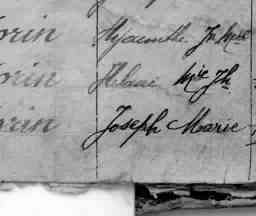 orin Hyacinthe Jh Mie
orin Hilaire Mie Jh
orin Joseph Marie